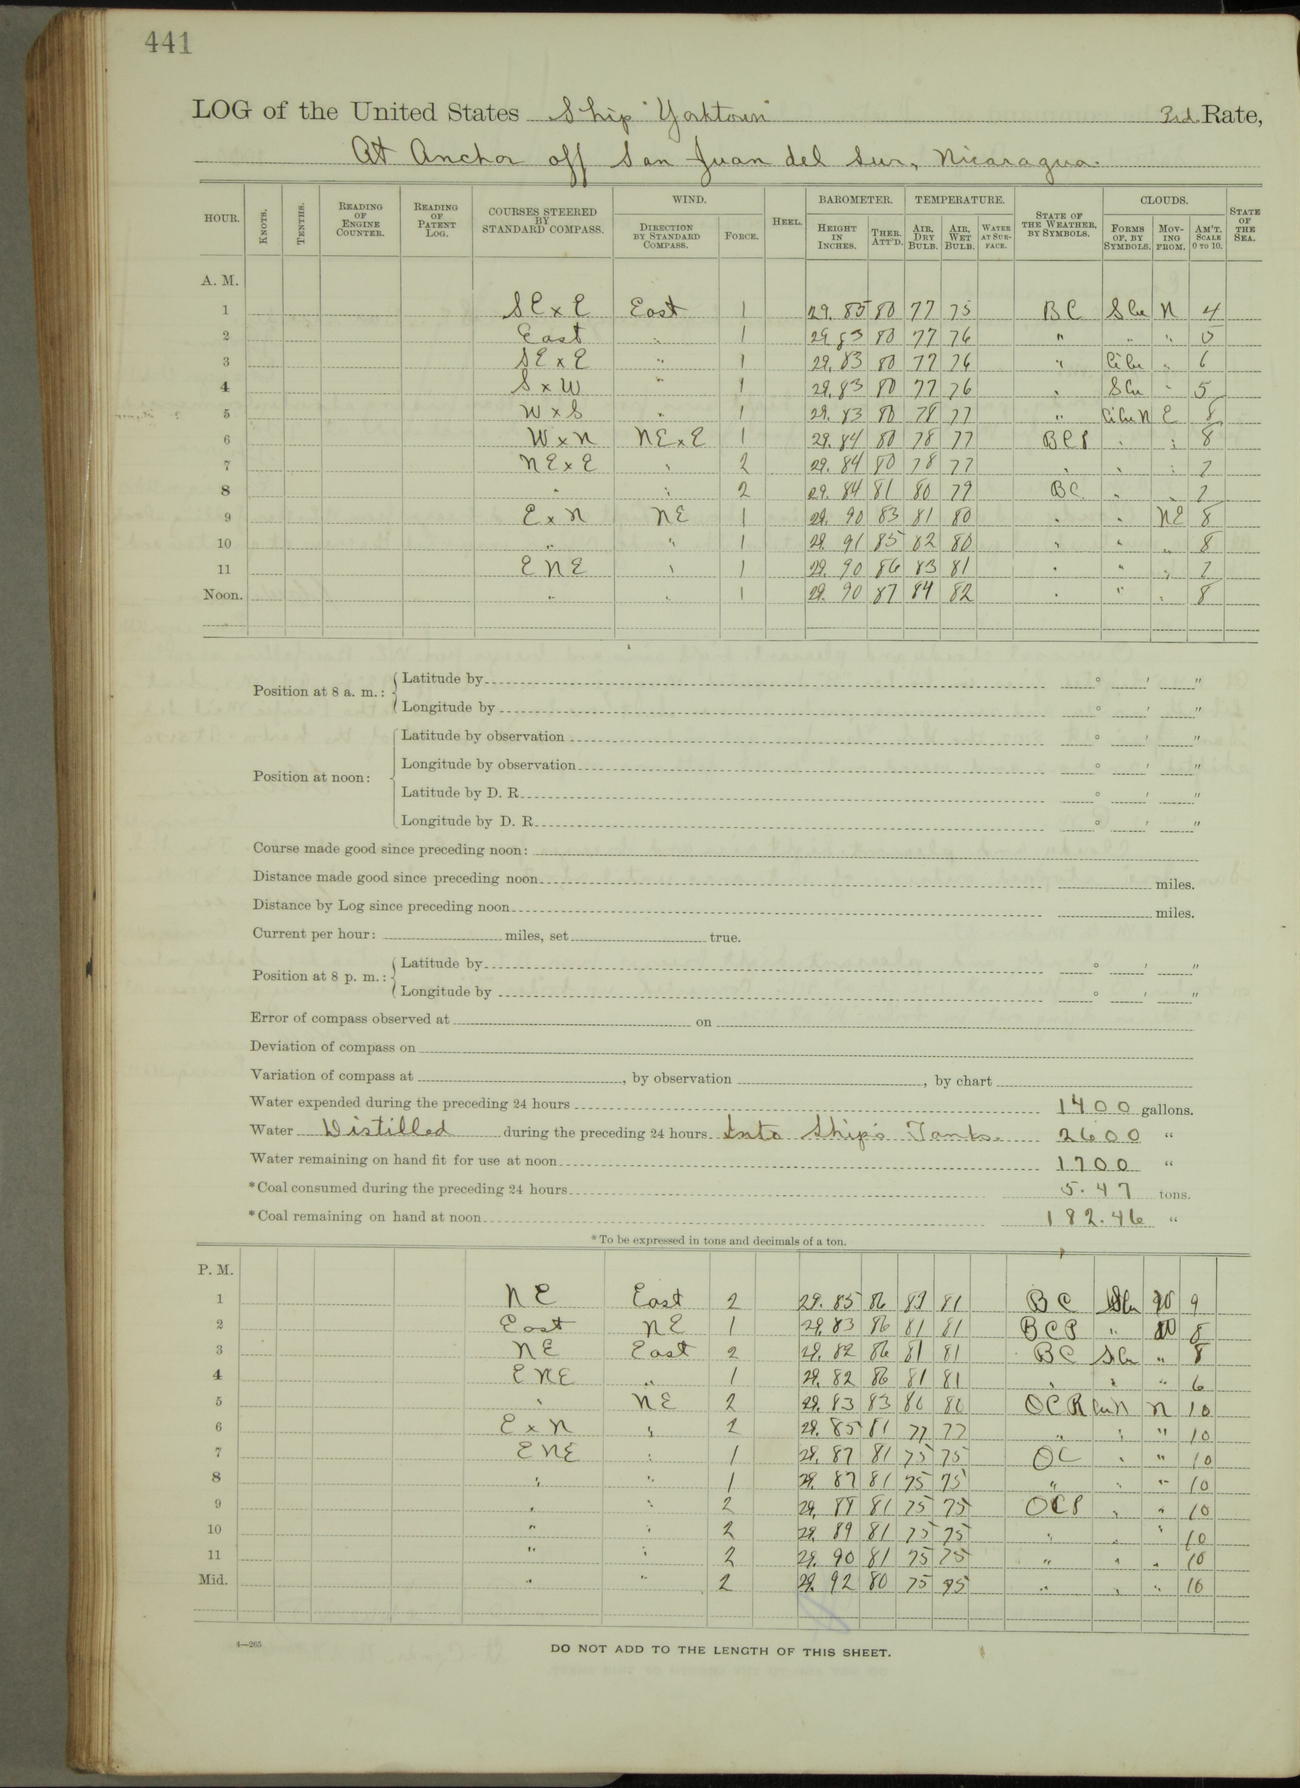 441
LOG of the United States Ship "Yorktown" 3rd Rate,
At Anchor off San Juan del Sur, Nicaragua.
HOUR. KNOTS. TENTHS. READING OF ENGINE COUNTER. READING OF PATENT LOG. COURSES STEERED BY STANDARD COMPASS. WIND. DIRECTION BY STANDARD COMPASS. FORCE. HEEL. BAROMETER. HEIGHT IN INCHES. THER. ATT'D. TEMPERATURE. AIR, DRY BULB. AIR, WET BULB. WATER AT SURFACE. STATE OF THE WEATHER, BY SYMBOLS. CLOUDS. FORMS OF, BY SYMBOLS. MOVING FROM. AM'T. SCALE 0 TO 10. STATE OF THE SEA.
A. M.
1 SE x E East 1 29. 85 80 77 75 BC S Cu N 4
2 East " 1 29. 83 80 77 76 " " " 5
3 SE x E " 1 29. 83 80 77 76 " Ci Cu " 6
4 S x W " 1 29. 83 80 77 76 " S Cu " 5
5 W x S " 1 29. 83 80 78 77 " Ci Cu N E 8
6 W x N NE x E 1 29. 84 80 78 77 BCP " " 8
7 NE x E " 2 29. 84 80 78 77 " " " 7
8 " " 2 29. 84 81 80 79 BC " " 7
9 E x N NE 1 29. 90 83 81 80 " " NE 8
10 " " 1 29. 91 85 82 80 " " " 8
11 ENE " 1 29. 90 86 83 81 " " " 7
Noon. " " 1 29. 90 87 84 82 " " " 8
Position at 8 a. m.: Latitude by ° ′ ″
Longitude by ° ′ ″
Position at noon: Latitude by observation ° ′ ″
Longitude by observation ° ′ ″
Latitude by D. R. ° ′ ″
Longitude by D. R. ° ′ ″
Course made good since preceding noon:
Distance made good since preceding noon miles.
Distance by Log since preceding noon miles.
Current per hour: miles, set true.
Position at 8 p. m.: Latitude by ° ′ ″
Longitude by ° ′ ″
Error of compass observed at on
Deviation of compass on
Variation of compass at , by observation , by chart
Water expended during the preceding 24 hours 1400 gallons.
Water Distilled during the preceding 24 hours Into Ship's Tanks. 2600 "
Water remaining on hand fit for use at noon 1700 "
*Coal consumed during the preceding 24 hours 5.47 tons.
*Coal remaining on hand at noon 182.46 "
*To be expressed in tons and decimals of a ton.
P. M.
1 NE East 2 29. 85 86 81 BC S Cu 9
2 East NE 1 29. 83 86 81 81 BCP " 8
3 NE East 2 29. 82 86 81 81 BC S Cu " 8
4 ENE " 1 29. 82 86 81 81 " " " 6
5 " NE 2 29. 83 83 80 80 OCR Cu N N 10
6 E x N " 2 29. 85 81 77 77 " " " 10
7 ENE " 1 29. 87 81 75 75 OC " " 10
8 " " 1 29. 87 81 75 75 " " " 10
9 " " 2 29. 81 75 75 OCP " " 10
10 " " 2 29. 89 81 75 75 " " " 10
11 " " 2 29. 90 81 75 75 " " " 10
Mid. " " 2 29. 92 80 75 75 " " " 10
4—265
DO NOT ADD TO THE LENGTH OF THIS SHEET.